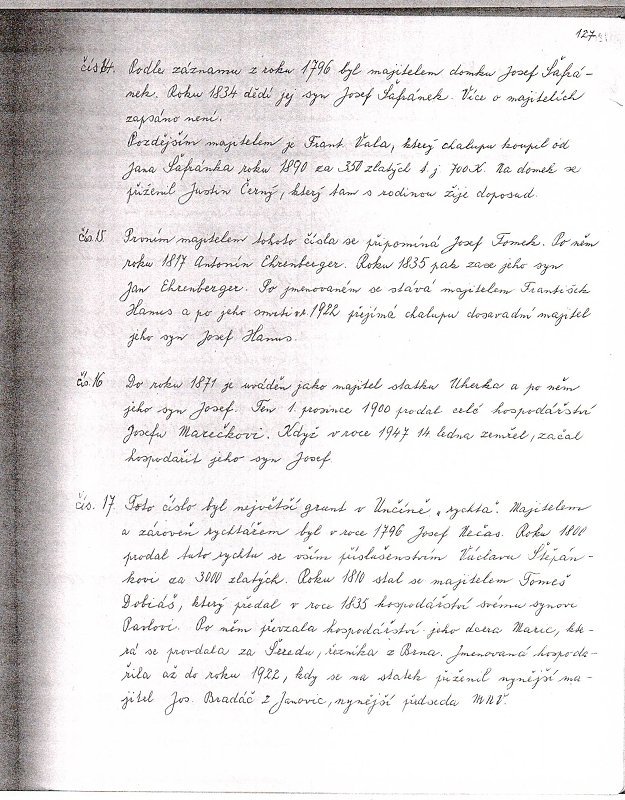 127
čís 14. Podle záznamu z roku 1796 byl majitelem domku Josef Šafrá-
nek. Roku 1834 dědí jej syn Josef Šafránek. Více o majitelích
zapsáno není.
Pozdějším majitelem je Frant. Vala, který chalupu koupil od
Jana Šafránka roku 1890 za 350 zlatých t. j 700 K. Na domek se
přiženil Justin Černý, který tam s rodinou žije doposud.
čís. 15 Prvním majitelem tohoto čísla se připomíná Josef Tomek. Po něm
roku 1817 Antonín Ehrenberger. Roku 1835 pak zase jeho syn
Jan Ehrenberger. Po jmenovaném se stává majitelem František
Hanus a po jeho smrti v r. 1922 přejímá chalupu dosavadní majitel
jeho syn Josef Hanus.
čís. 16 Do roku 1871 je uváděn jako majitel statku Uherka a po něm
jeho syn Josef. Ten 1. prosince 1900 prodal celé hospodářství
Josefu Marečkovi. Když v roce 1947 14 ledna zemřel, začal
hospodařit jeho syn Josef
čís. 17. Toto číslo byl největší grunt v Unčíně „rychta". Majitelem
a zároveň rychtářem byl v roce 1796 Josef Nečas. Roku 1800
prodal tuto rychtu se vším příslušenstvím Václavu Štěpán-
kovi za 3000 zlatých. Roku 1810 stal se majitelem Tomeš
Dobiáš, který předal v roce 1835 hospodářství svému synovi
Pavlovi. Po něm převzala hospodářství jeho dcera Marie, kte-
rá se provdala za Šeredu, řezníka z Brna. Jmenovaná hospoda-
řila až do roku 1922, kdy se na statek přiženil nynější ma-
jitel Jos. Bradáč z Janovic, nynější předseda MNV.